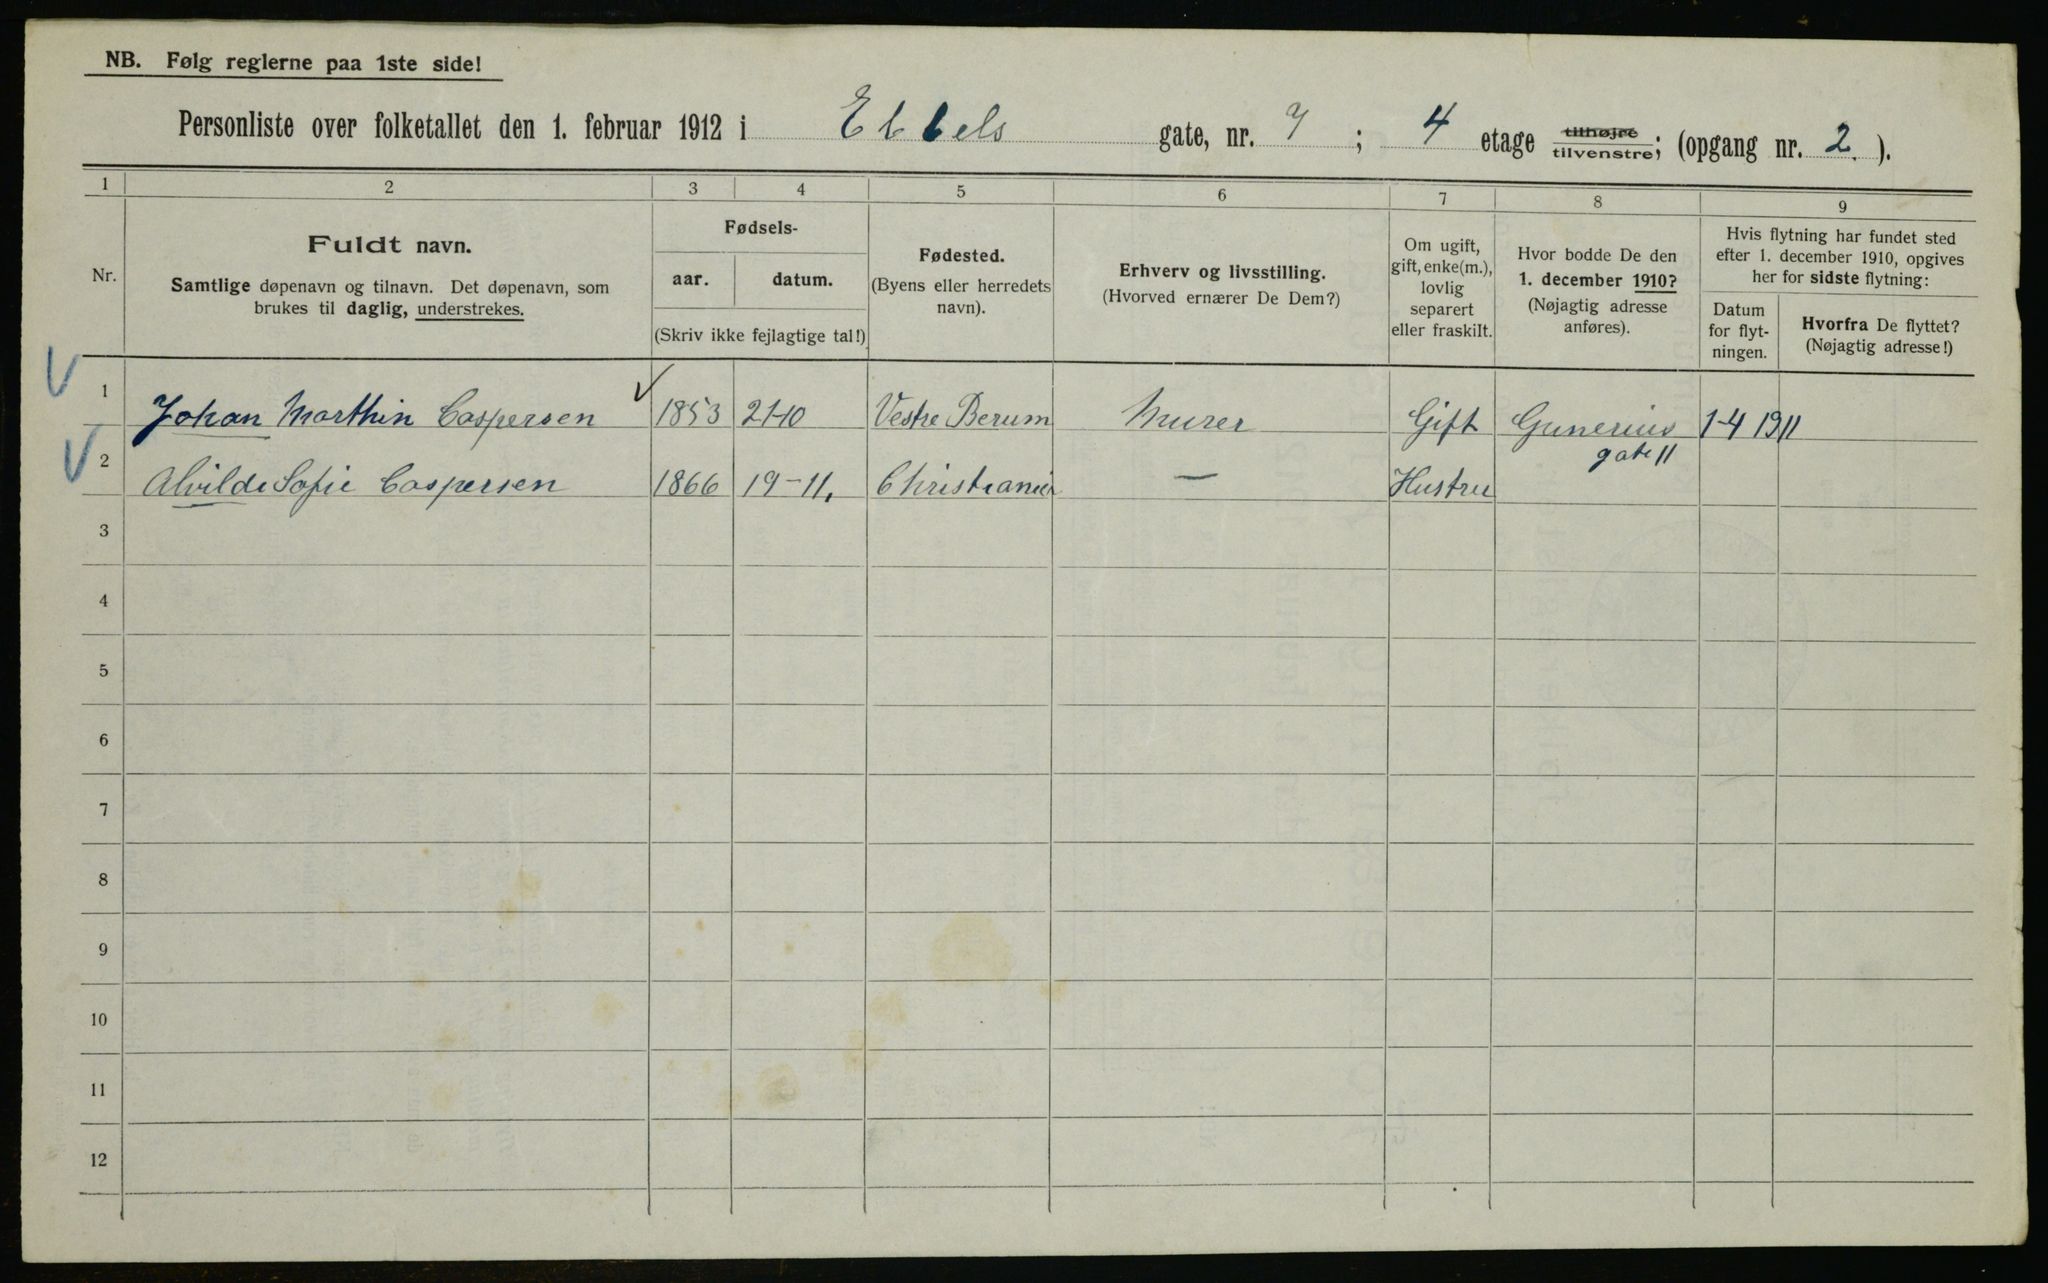 NB. Følg reglerne paa 1ste side!
Personliste over folketallet den 1. februar 1912 i Ebbels gate, nr. 7 ; 4 etage tilhøjre tilvenstre; (opgang nr. 2. ).
1 2 3 4 5 6 7 8 9
Nr.
Fuldt navn.
Samtlige døpenavn og tilnavn. Det døpenavn, som
brukes til daglig, understrekes.
Fødsels-
aar. datum.
(Skriv ikke fejlagtige tal!)
Fødested.
(Byens eller herredets
navn).
Erhverv og livsstilling.
(Hvorved ernærer De Dem?)
Om ugift,
gift, enke(m.),
lovlig
separert
eller fraskilt.
Hvor bodde De den
1. december 1910?
(Nøjagtig adresse
anføres).
Hvis flytning har fundet sted
efter 1. december 1910, opgives
her for sidste flytning:
Datum
for flyt-
ningen.
Hvorfra De flyttet?
(Nøjagtig adresse!)
1 Johan Marthin Caspersen 1853 21-10 Vestre Berum Murer Gift Gunerius 1-4 1911
gate 11
2 Alvilde Sofie Caspersen 1866 19-11. Christiania — Hustru
3
4
5
6
7
8
9
10
11
12